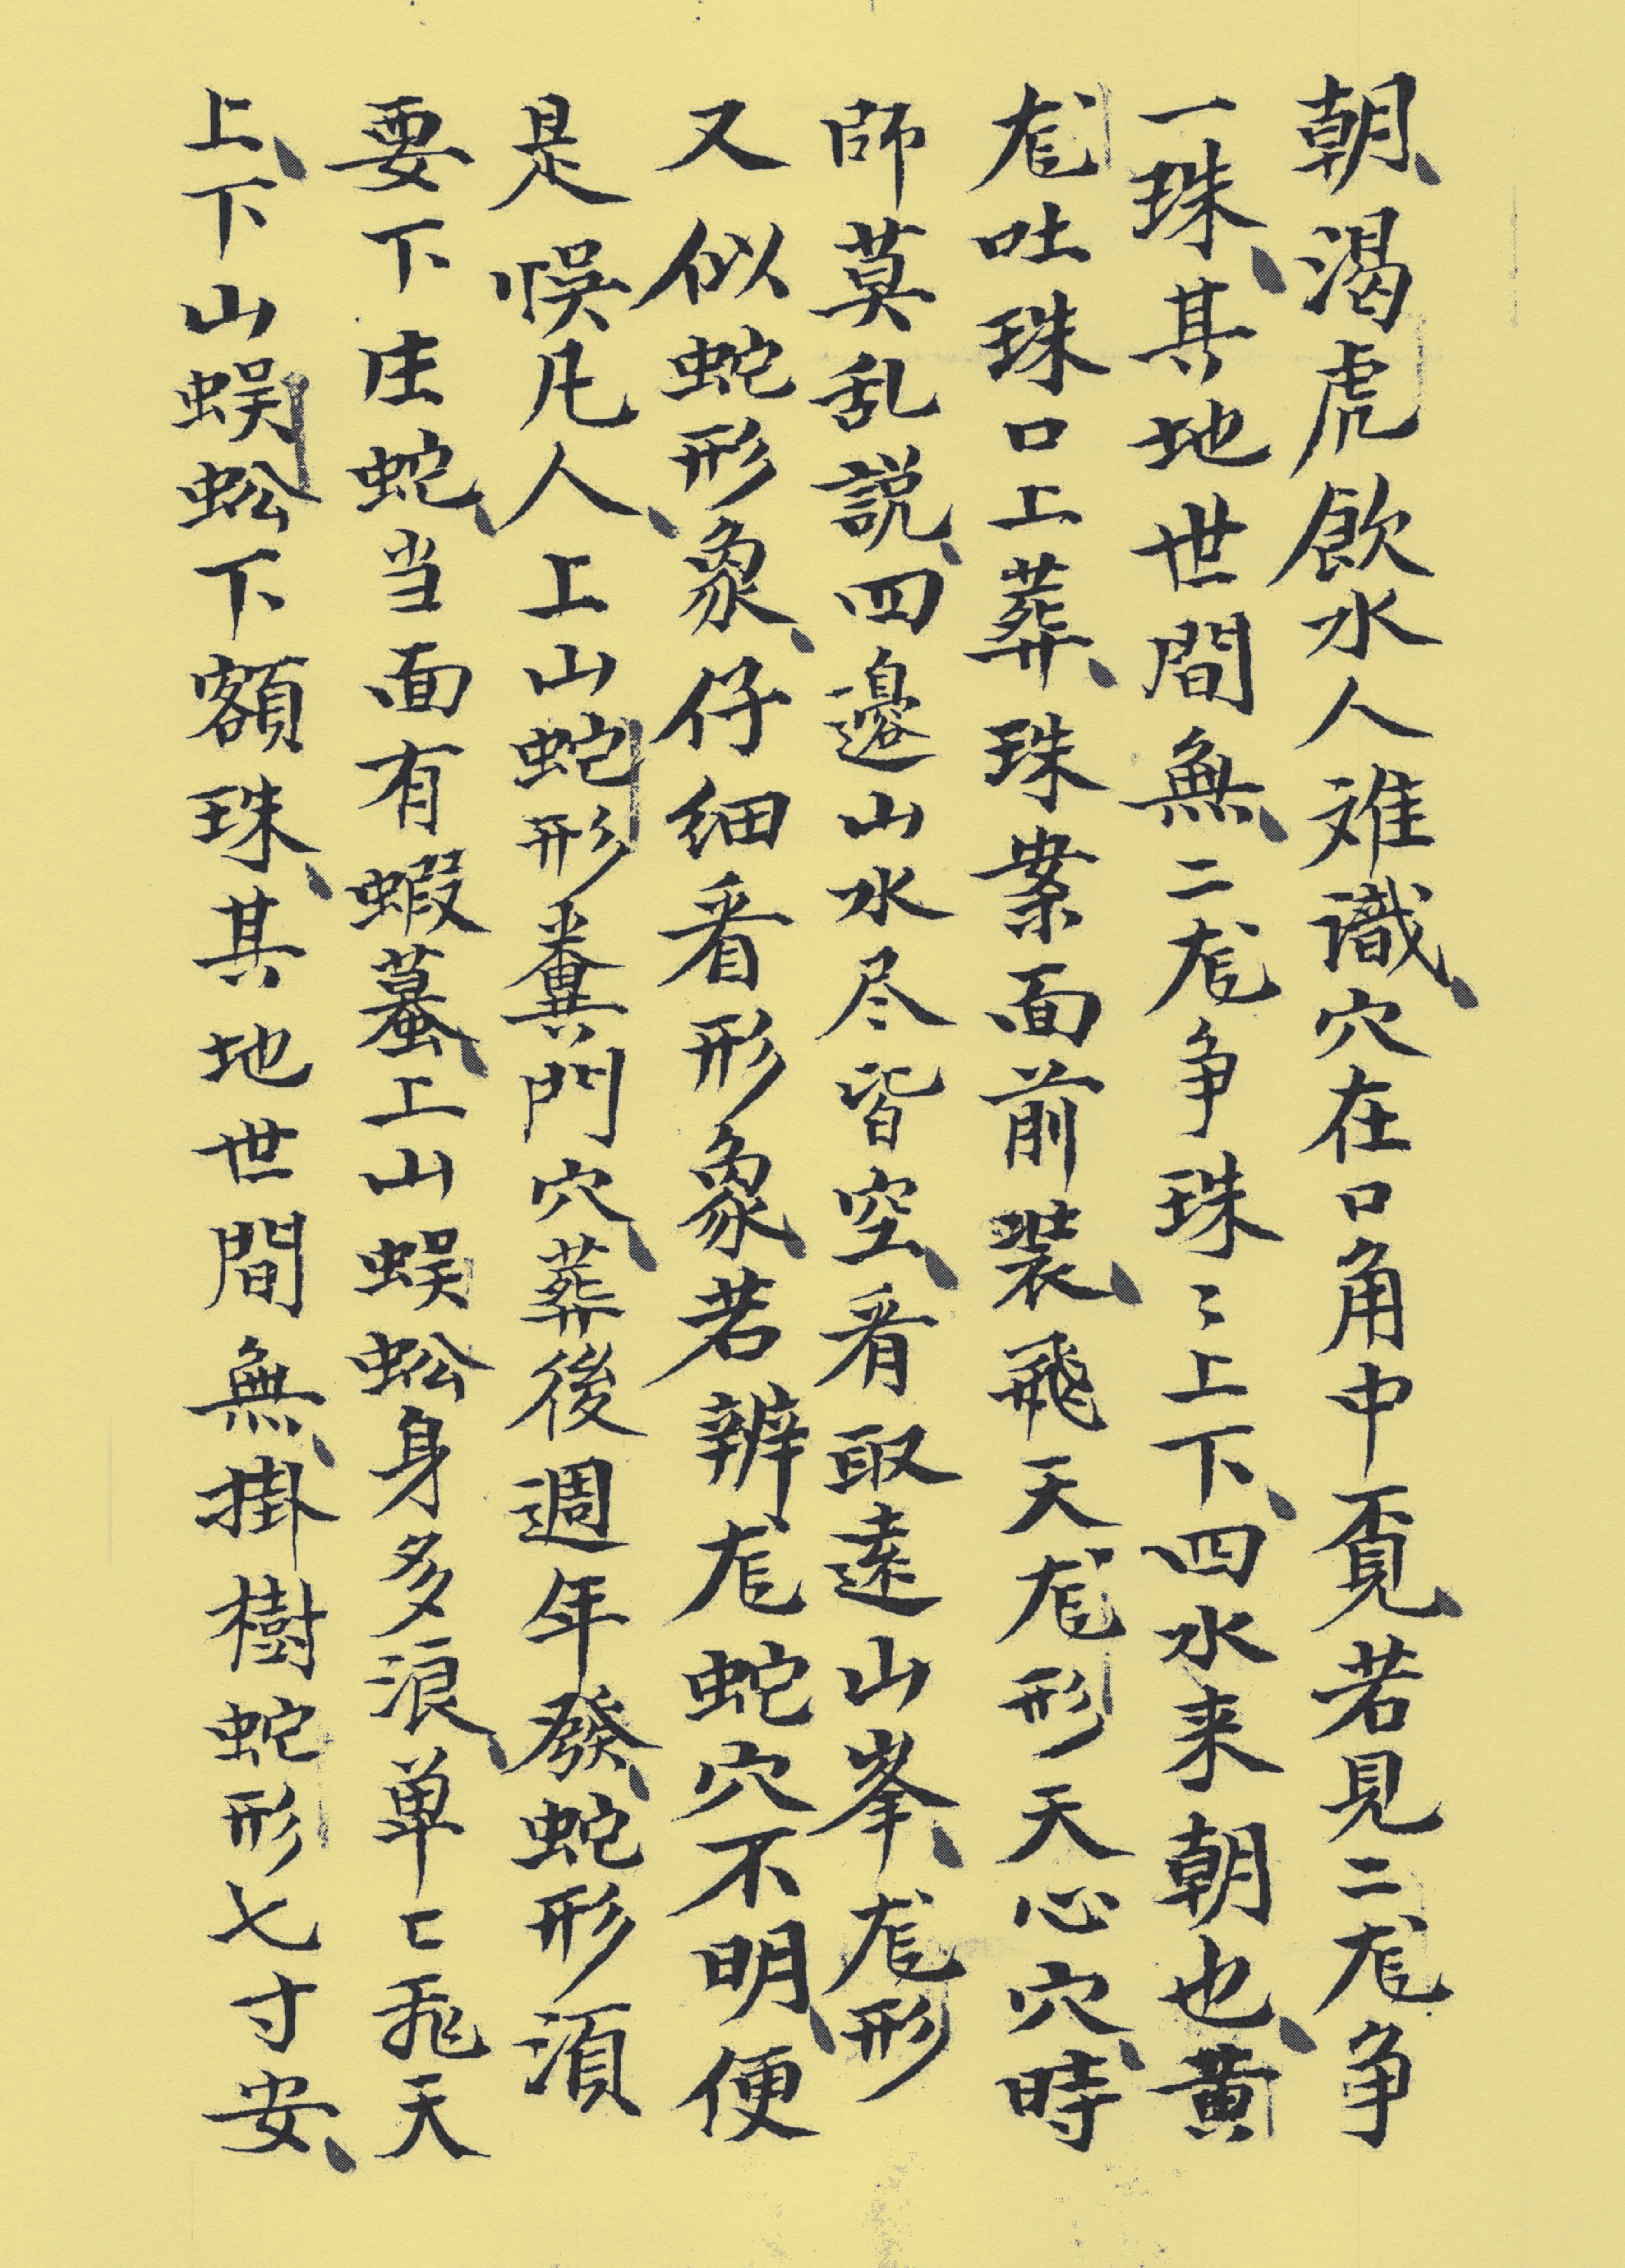 朝、渴虎飲水人难識、穴在口角中覔、若見二尨争
一珠、其地世間無、二尨争珠〻上下、四水来朝也、黄
尨吐珠口上葬、珠案面前裝、飛天尨形天心穴、時
師莫乱説、四邊山水尽皆空、看取遠山峯、尨形
又似蛇形象、仔细看形象、若辨尨蛇穴不明、便
是悮凡人、上山蛇形糞門穴、葬後週年發、蛇形須
要下庄蛇、当面有蝦蟇、上山蜈蚣身多浪、单〻飛天
上、下山蜈蚣下額珠、其地世間無、掛樹蛇形七寸安、